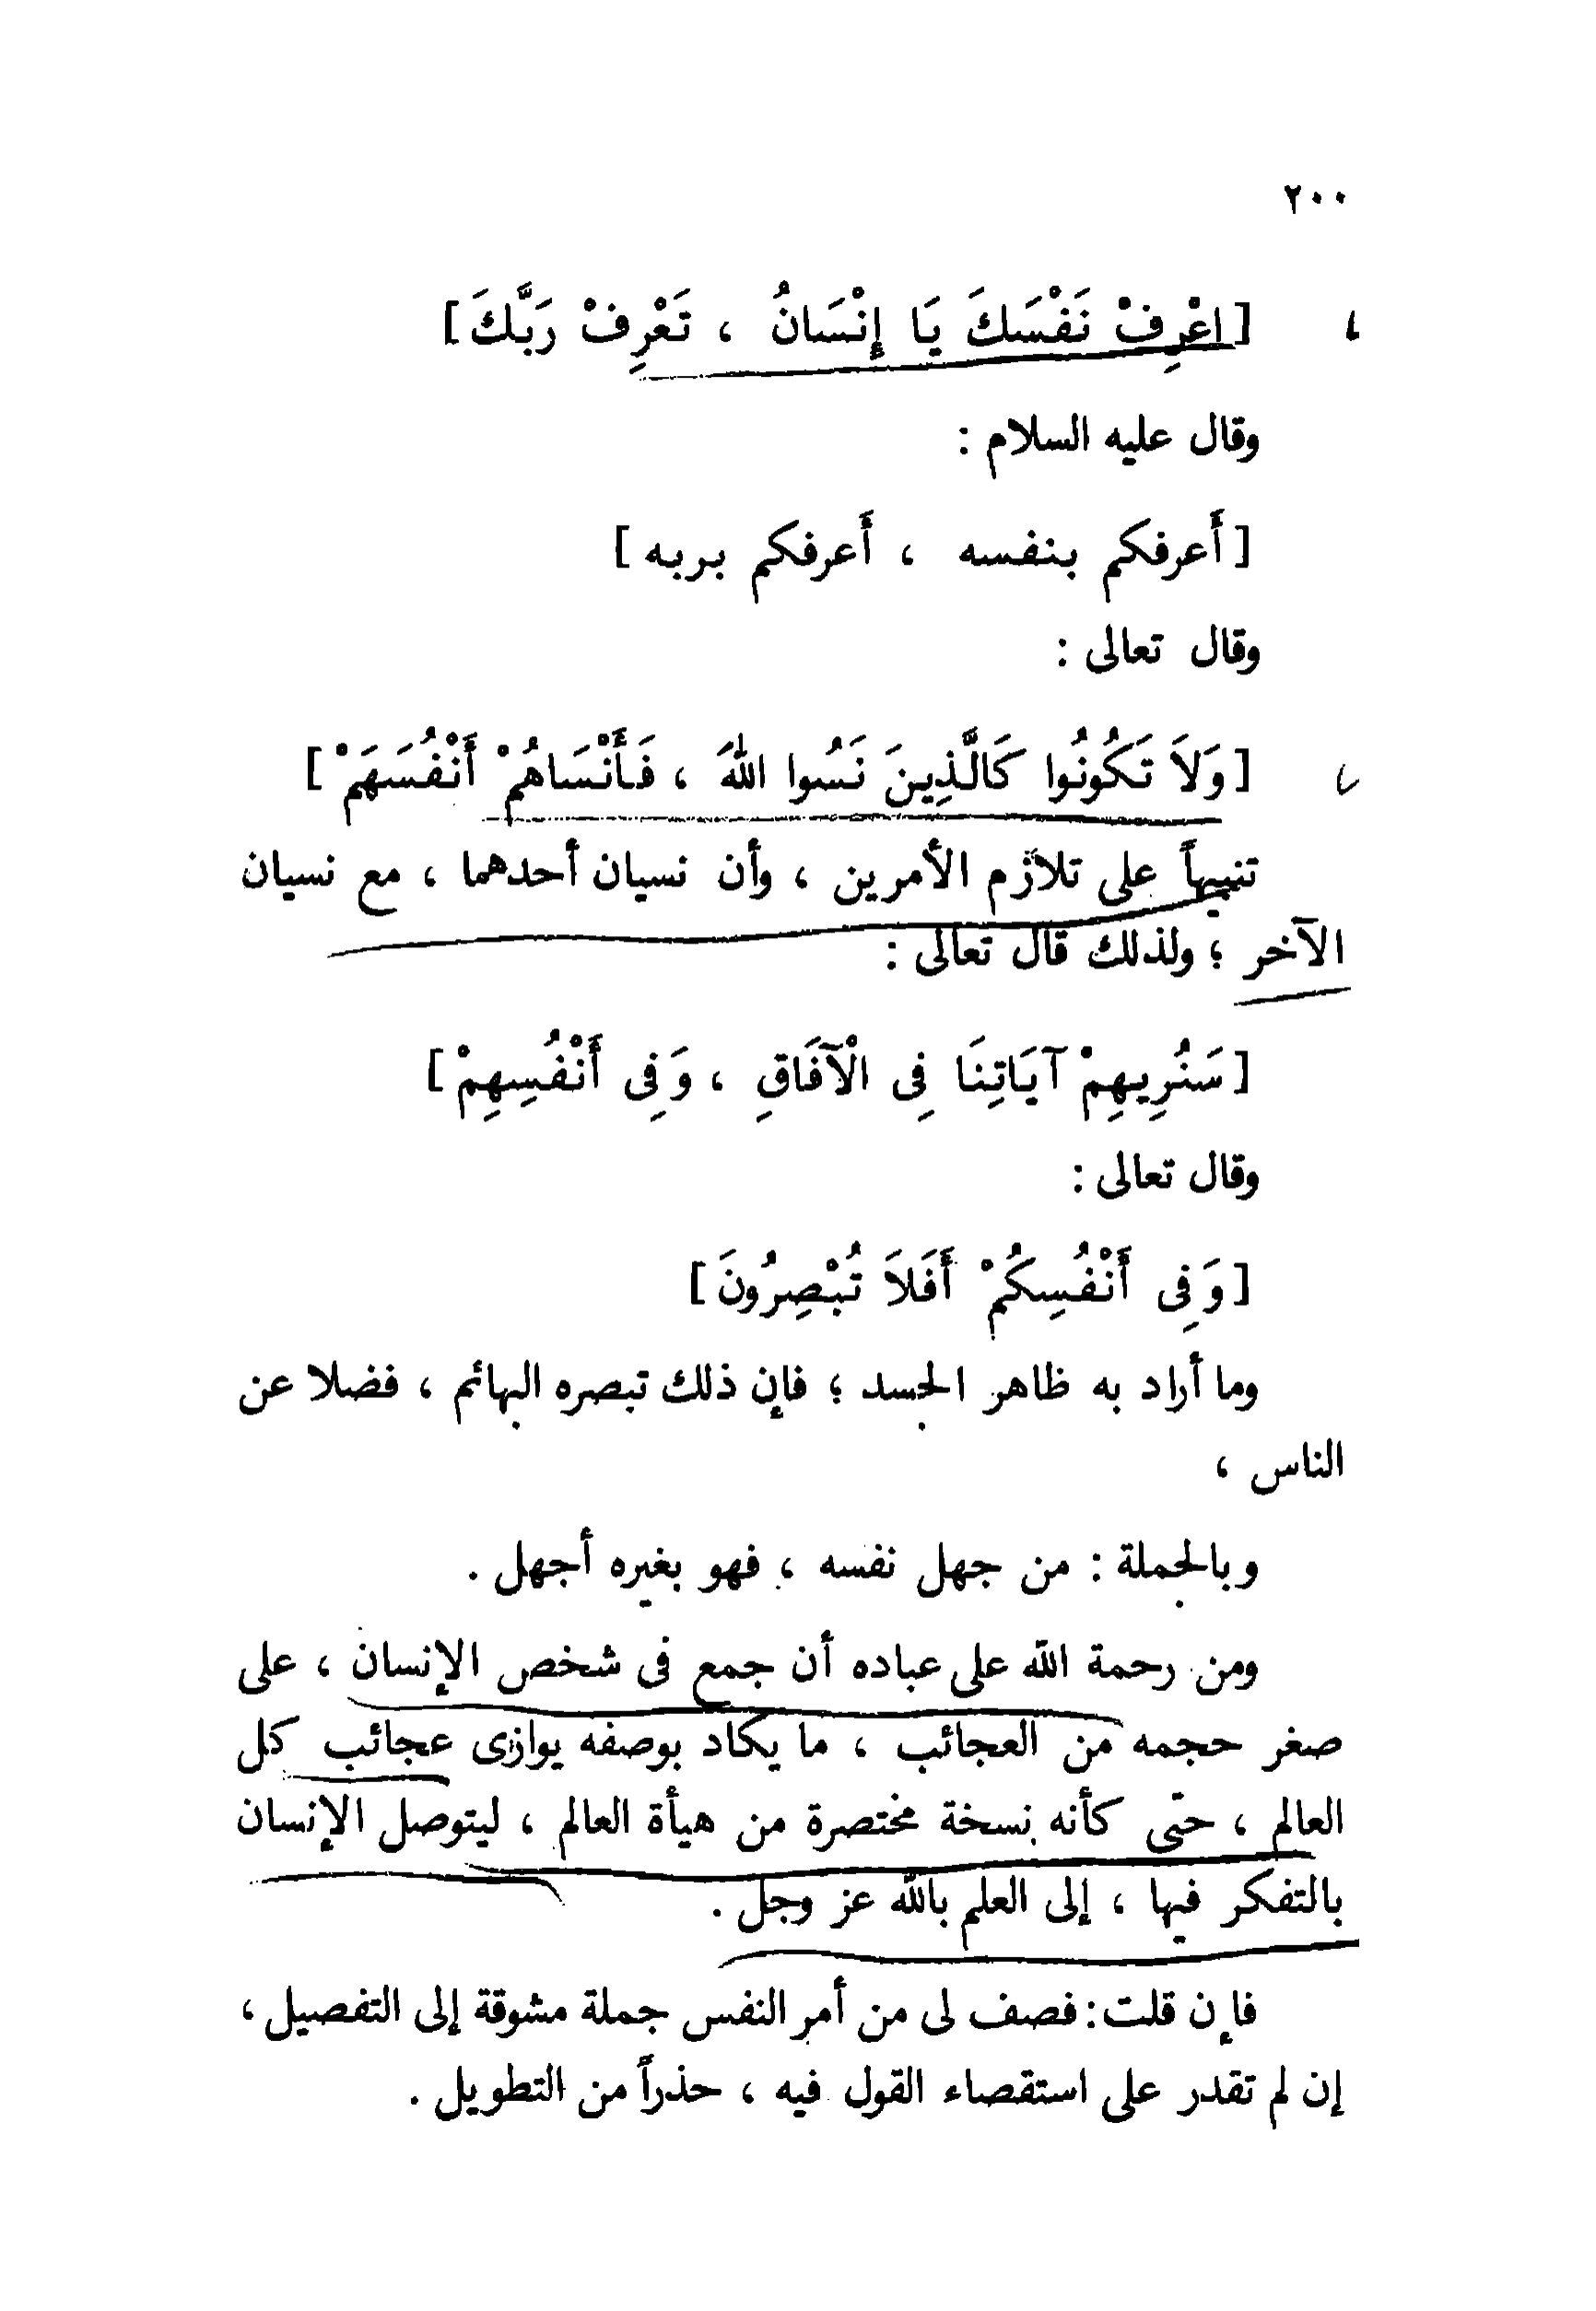 ٢٠٠
[اعْرِفْ نَفْسَكَ يَا إِنْسَانُ ، تَعْرِفْ رَبَّكَ]
وقال عليه السلام :
[أَعرفكم بنفسه ، أَعرفكم بربه]
وقال تعالى :
[وَلاَ تَكُونُوا كَالَّذِينَ نَسُوا اللهَ ، فَأَنْسَاهُمْ أَنْفُسَهَمْ]
تنبيهاً على تلازم الأمرين ، وأن نسيان أحدهما ، مع نسيان
الآخر ؛ ولذلك قال تعالى :
[سَنُرِيهِمْ آيَاتِنَا فِى الْآفَاقِ ، وَفِى أَنْفُسِهِمْ]
وقال تعالى :
[وَفِى أَنْفُسِكُمْ أَفَلاَ تُبْصِرُونَ]
وما أراد به ظاهر الجسد ؛ فإن ذلك تبصره البهائم ، فضلا عن
الناس ،
وبالجملة : من جهل نفسه ، فهو بغيره أجهل .
ومن رحمة الله على عباده أن جمع فى شخص الإنسان ، على
صغر حجمه من العجائب ، ما يكاد بوصفه يوازى عجائب كل
العالم ، حتى كأنه نسخة مختصرة من هيأة العالم ، ليتوصل الإنسان
بالتفكر فيها ، إلى العلم بالله عز وجل .
فإن قلت : فصف لى من أمر النفس جملة مشوقة إلى التفصيل ،
إن لم تقدر على استقصاء القول فيه ، حذراً من التطويل .